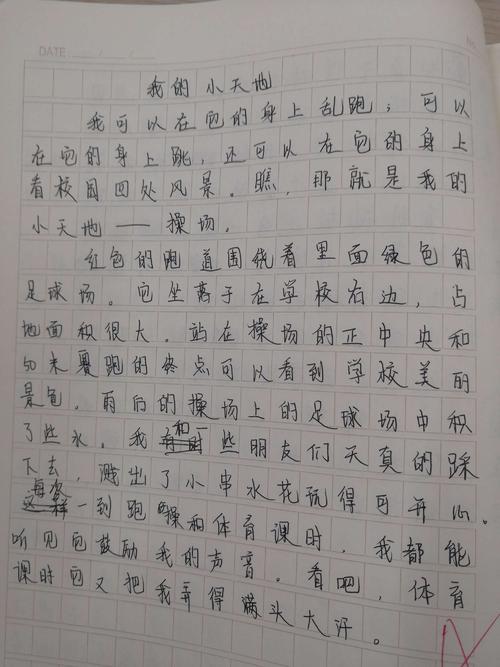 DATE
我的小天地
我可以在它的身上乱跑；可以
在它的身上跳，还可以在它的身上
看校园四处风景。瞧，那就是我的
小天地——操场。
红色的跑道围绕着里面绿色的
足球场。它坐离于在学校右边，占
地面积很大。站在操场的正中央和
50米赛跑的终点可以看到学校美丽
景色。雨后的操场上的足球场中积
了些水。我和一些朋友们天真的踩
下去，溅出了小串水花玩得可开心。
每次一到跑操和体育课时，我都能
听见它鼓励我的声音。看吧，体育
课时它又把我弄得满头大汗。